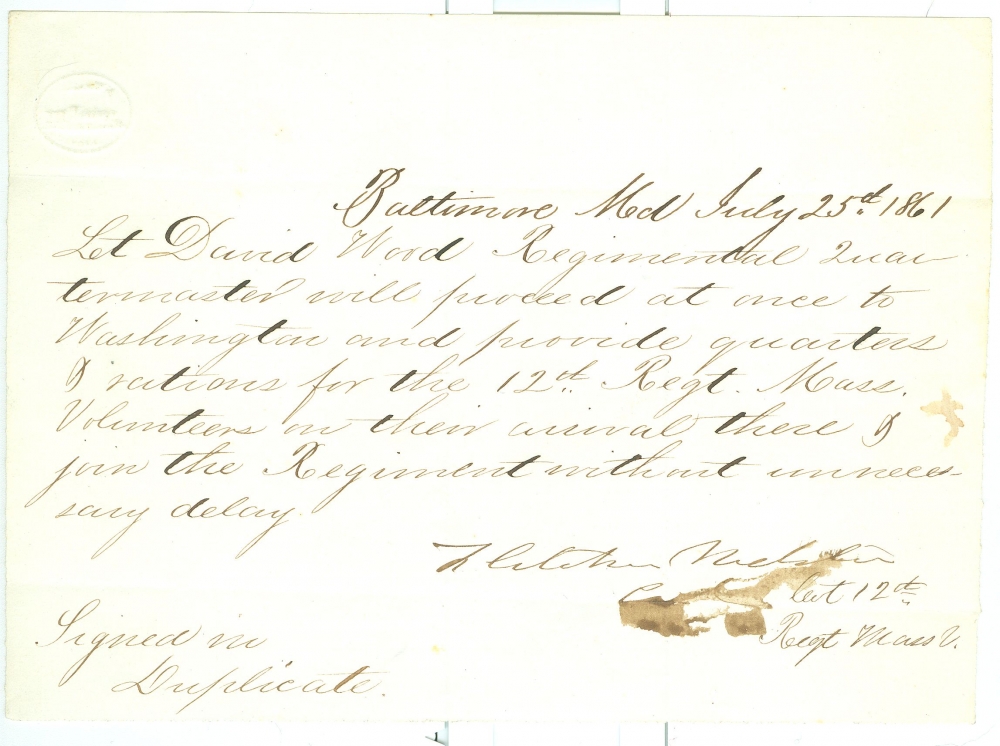 Baltimore Md July 25th. 1861
Lt David Wood Regimental Quar
termaster will proceed at once to
Washington and provide quarters
& rations for the 12th. Regt. Mass.
Volunteers on their arrival there &
join the Regiment without unneces-
sary delay.
Fletcher Webster
12th.
Regt Mass V.
Signed in
Duplicate.